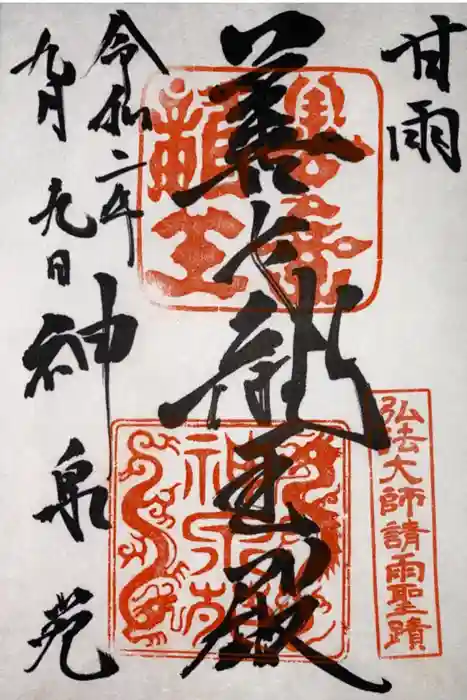 甘雨
弘法大師請雨聖蹟
善女龍王殿
善女龍王
神泉苑
令和二年
九月九日
神泉苑